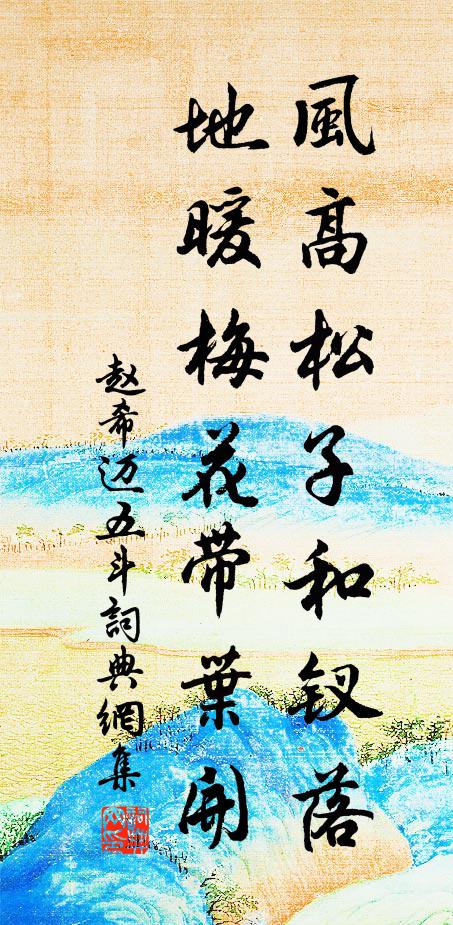 風高松子和钗落
地暖梅花带葉開
赵希迈五斗詞典網集